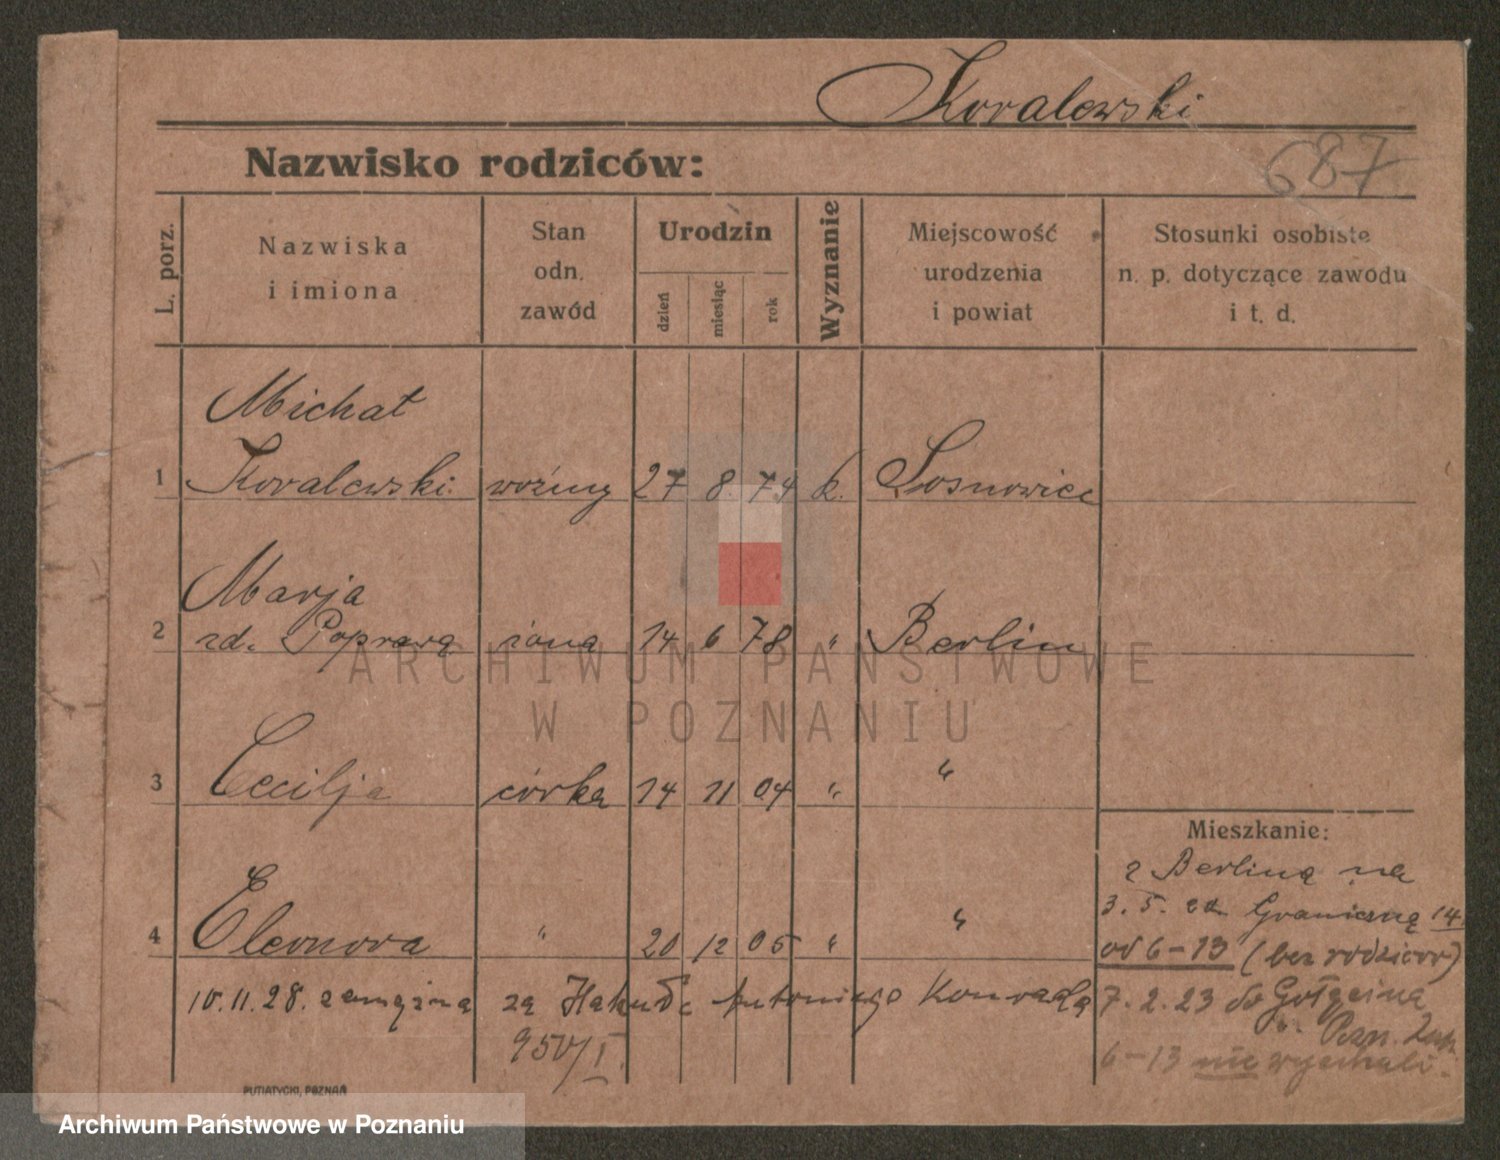 Koralewski
687
Nazwisko rodziców:
L. porz.
Nazwiska
i imiona
Stan
odn.
zawód
Urodzin
dzień
miesiąc
rok
Wyznanie
Miejscowość
urodzenia
i powiat
Stosunki osobiste
n. p. dotyczące zawodu
i t. d.
Michał
1 Koralewski woźny 27 8 74 k. Sosnowice
Marja
2 zd. Poprawa żona 14 6 78 " Berlin
3 Cecilja córka 14 11 04 " "
Mieszkanie:
z Berlina na
3. 5. 22 Graniczną 14.
4 Eleonora " 20 12 05 " "
od 6–13 (bez rodziców)
10.11.28. zamężna za Antoniego Konrada
7. 2. 23 do
950/I.
6–13 nie wyjechali.
PUTIATYCKI, POZNAŃ
ARCHIWUM PAŃSTWOWE
W POZNANIU
Archiwum Państwowe w Poznaniu